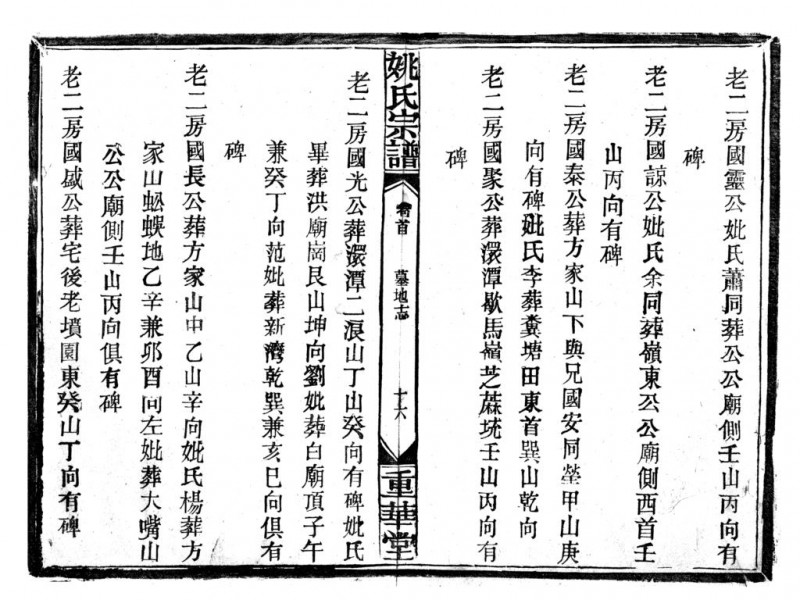 老二房國靈公妣氏蕭同葬公公廟側壬山丙向有
碑
老二房國諒公妣氏余同葬嶺東公公廟側西首壬
山丙向有碑
老二房國泰公葬方家山下與兄國安同塋甲山庚
向有碑妣氏李葬糞塘田東首巽山乾向
老二房國聚公葬澴潭歇馬嶺芝蔴垅壬山丙向有
碑
姚氏宗譜
卷首
墓地志
十六
重華堂
老二房國光公葬澴潭二浪山丁山癸向有碑妣氏
畢葬洪廟崗艮山坤向劉妣葬白廟頂子午
兼癸丁向范妣葬新灣乾巽兼亥巳向俱有
碑
老二房國長公葬方家山中乙山辛向妣氏楊葬方
家山蚣蜈地乙辛兼卯酉向左妣葬大嘴山
公公廟側壬山丙向俱有碑
老二房國盛公葬宅後老墳園東癸山丁向有碑